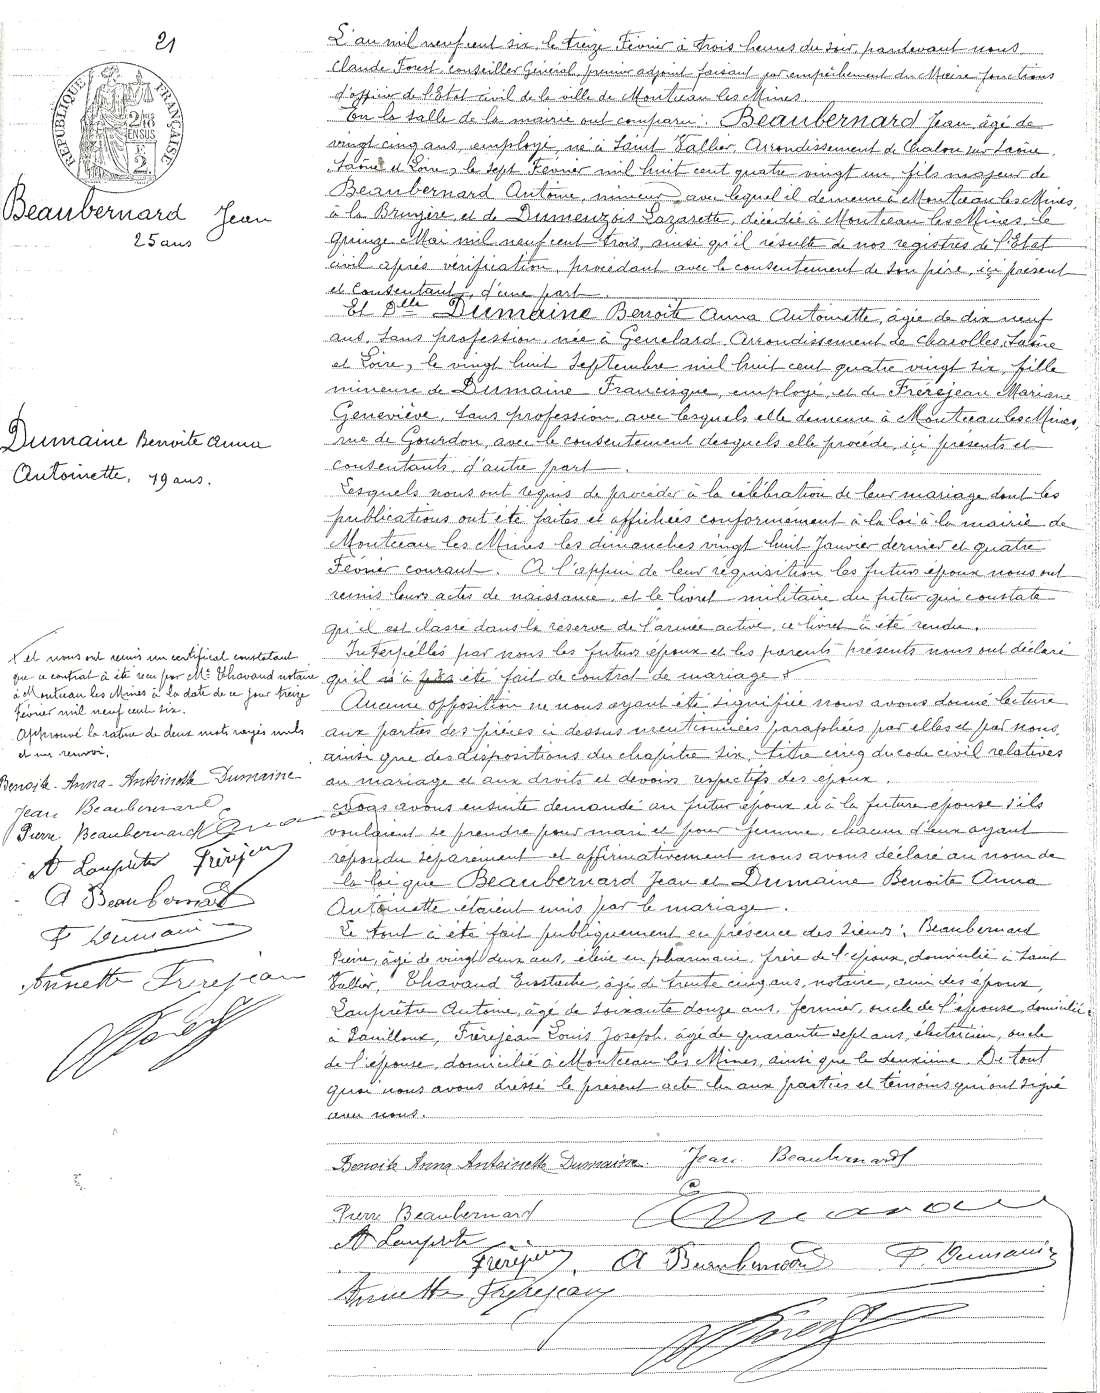 21
RÉPUBLIQUE FRANÇAISE
Beaubernard Jean
25 ans
Dumaine Benoite Anna
Antoinette, 19 ans.
L'an mil neuf cent six, le treize Février à trois heures du soir, pardevant nous
Claude Forest, conseiller Général, premier adjoint faisant par empêchement du Maire fonctions
d'officier de l'Etat civil de la ville de Montceau les Mines
En la salle de la mairie ont comparu : Beaubernard Jean, âgé de
vingt cinq ans, employé, né à Saint Vallier, Arrondissement de Chalon sur Saône,
Saône et Loire, le sept Février mil huit cent quatre vingt un, fils majeur de
Beaubernard Antoine, mineur, avec lequel il demeure à Montceau les Mines,
à la Bruyère, et de Dumeuzois Lazarette, décédée à Montceau les Mines, le
quinze Mai mil neuf cent trois, ainsi qu'il résulte de nos registres de l'Etat
civil après vérification, procédant avec le consentement de son père, ici présent
et consentant, d'une part.
Et Dlle Dumaine Benoite Anna Antoinette, âgée de dix neuf
ans, sans profession, née à Genelard, Arrondissement de Charolles, Saône
et Loire, le vingt huit Septembre mil huit cent quatre vingt six, fille
mineure de Dumaine Francisque, employé, et de Frèrejean Mariane
Geneviève, sans profession, avec lesquels elle demeure à Montceau les Mines,
rue de Gourdon, avec le consentement desquels elle procède, ici présents et
consentants, d'autre part.
Lesquels nous ont requis de procéder à la célébration de leur mariage dont les
publications ont été faites et affichées conformément à la loi à la mairie de
Montceau les Mines les dimanches vingt huit Janvier dernier et quatre
Février courant. A l'appui de leur réquisition les futurs époux nous ont
remis leurs actes de naissance, et le livret militaire du futur qui constate
qu'il est classé dans la réserve de l'armée active, ce livret a été rendu.
Interpellés par nous les futurs époux et les parents présents nous ont déclaré
qu'il n'a pas été fait de contrat de mariage x
Aucune opposition ne nous ayant été signifiée nous avons donné lecture
aux parties des pièces ci dessus mentionnées paraphées par elles et par nous,
ainsi que des dispositions du chapitre six, titre cinq du code civil relatives
au mariage et aux droits et devoirs respectifs des époux.
Nous avons ensuite demandé au futur époux et à la future épouse s'ils
voulaient se prendre pour mari et pour femme, chacun d'eux ayant
répondu séparément et affirmativement nous avons déclaré au nom de
la loi que Beaubernard Jean et Dumaine Benoite Anna
Antoinette étaient unis par le mariage.
Le tout a été fait publiquement en présence des Sieurs : Beaubernard
Pierre, âgé de vingt deux ans, élève en pharmacie, frère de l'époux, domicilié à Saint
Vallier, Chavaud Eustache, âgé de trente cinq ans, notaire, ami des époux,
Lauprêtre Antoine, âgé de soixante douze ans, fermier, oncle de l'épouse, domicilié
à Sailloux, Frèrejean Louis Joseph, âgé de quarante sept ans, électricien, oncle
de l'épouse, domicilié à Montceau les Mines, ainsi que le deuxième. De tout
quoi nous avons dressé le présent acte lu aux parties et témoins qui ont signé
avec nous.
x et nous ont remis un certificat constatant
que ce contrat a été reçu par Me Chavaud notaire
à Montceau les Mines à la date de ce jour treize
Février mil neuf cent six.
Approuvé la rature de deux mots rayés nuls
et un renvoi.
Benoite-Anna-Antoinette Dumaine
Jean Beaubernard
Pierre Beaubernard
A Lauprêtre Frèrejean
A Beaubernard
F Dumaine
Annette Frèrejean
Benoite Anna Antoinette Dumaine. Jean Beaubernard
Pierre Beaubernard
A Lauprêtre
Frèrejean A Beaubernard F Dumaine
Annette Frèrejean